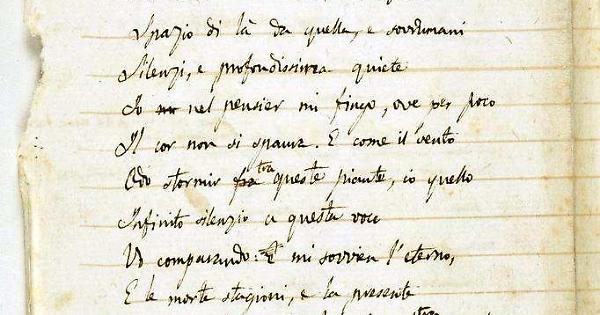 Spazio di là da quella, e sovrumani
Silenzi, e profondissima quiete
Io nel pensier mi fingo, ove per poco
Il cor non si spaura. E come il vento
Odo stormir fra tra queste piante, io quello
Infinito silenzio a questa voce
Vo comparando: E mi sovvien l'eterno,
E le morte stagioni, e la presente